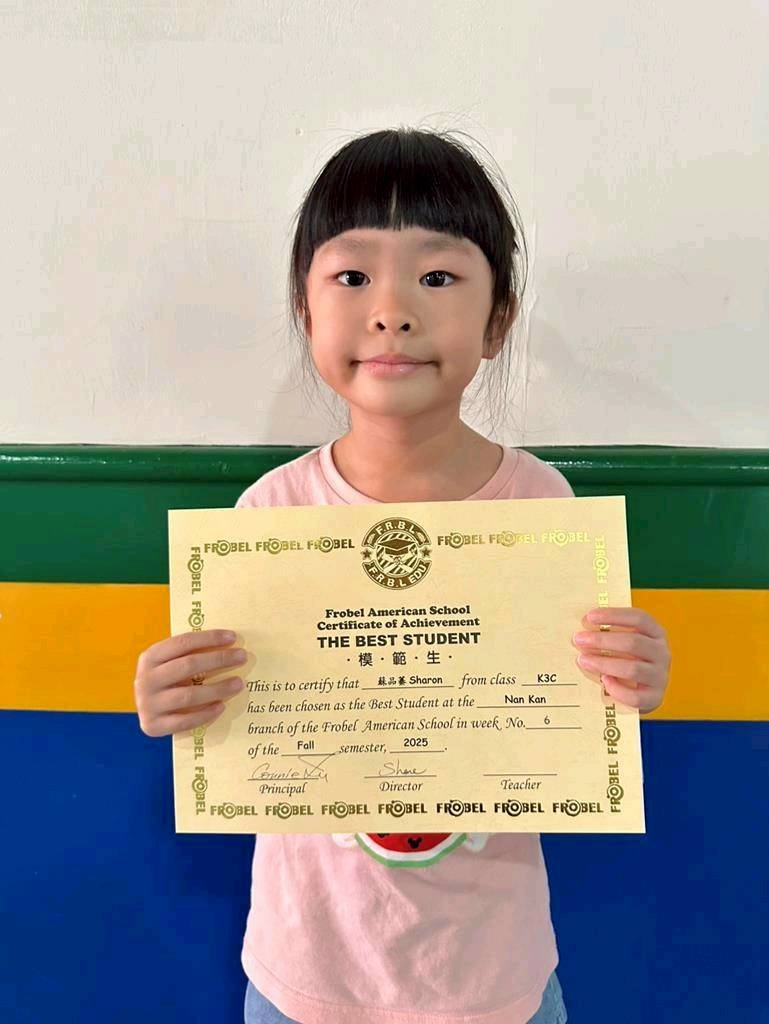 FROBEL FROBEL FROBEL F.R.B.L FROBEL FROBEL FROBEL
F.R.B.L EDU
Frobel American School
Certificate of Achievement
THE BEST STUDENT
·模·範·生·
This is to certify that 蘇品蓁 Sharon from class K3C
has been chosen as the Best Student at the Nan Kan
branch of the Frobel American School in week No. 6
of the Fall semester, 2025.
Connie Shane
Principal Director Teacher
FROBEL FROBEL FROBEL FROBEL FROBEL FROBEL FROBEL